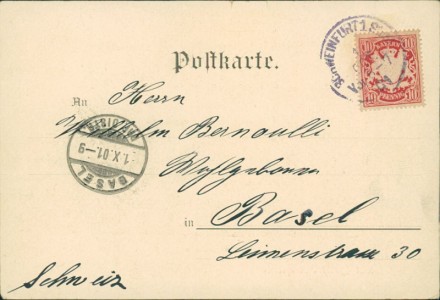 SCHWEINFURT 1
BAYERN
10 10
PFENNIG
Postkarte.
An Herrn
Wilhelm Bernoulli
Wohlgeboren
BASEL
1.X.01.-9
in Basel
Leimenstrasse 30
Schweiz